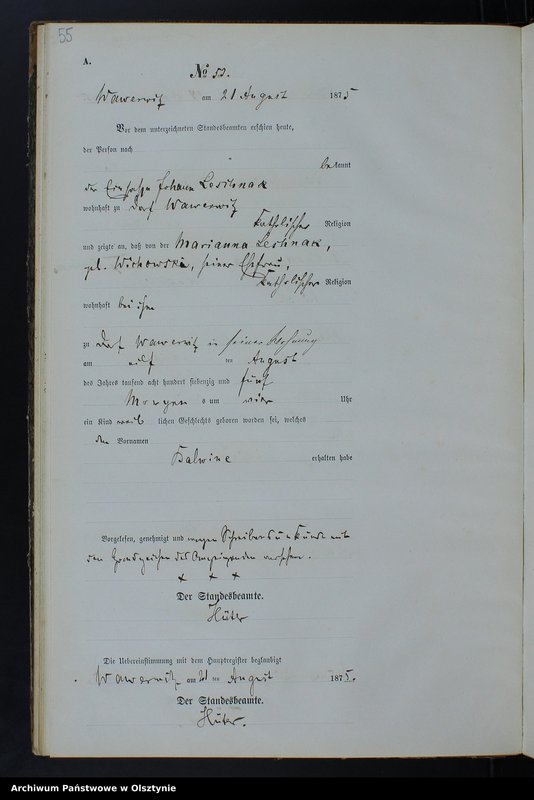 55
A.
No 52.
Wawerwitz am 21 August 1875
Vor dem unterzeichneten Standesbeamten erschien heute,
der Person nach
bekannt
der Einsasse Johann Leschnak
wohnhaft zu Dorf Wawerwitz
katholischer Religion
und zeigte an, daß von der Marianna Leshnak,
geb. Wichowski, seiner Ehefrau,
katholischer Religion
wohnhaft bei ihm
zu Dorf Wawerwitz in seiner Wohnung
am eilf ten August
des Jahres tausend acht hundert siebenzig und fünf
Morgens um vier Uhr
ein Kind weiblichen Geschlechts geboren worden sei, welches
den Vornamen
Balwine erhalten habe
Vorgelesen, genehmigt und wegen Schreibensunkunde mit
den Handzeichen des Anzeigenden versehen.
+ + +
Der Standesbeamte.
Hüter
Die Uebereinstimmung mit dem Hauptregister beglaubigt
Wawerwitz am 21 ten August 1875.
Der Standesbeamte.
Hüter.
Archiwum Państwowe w Olsztynie